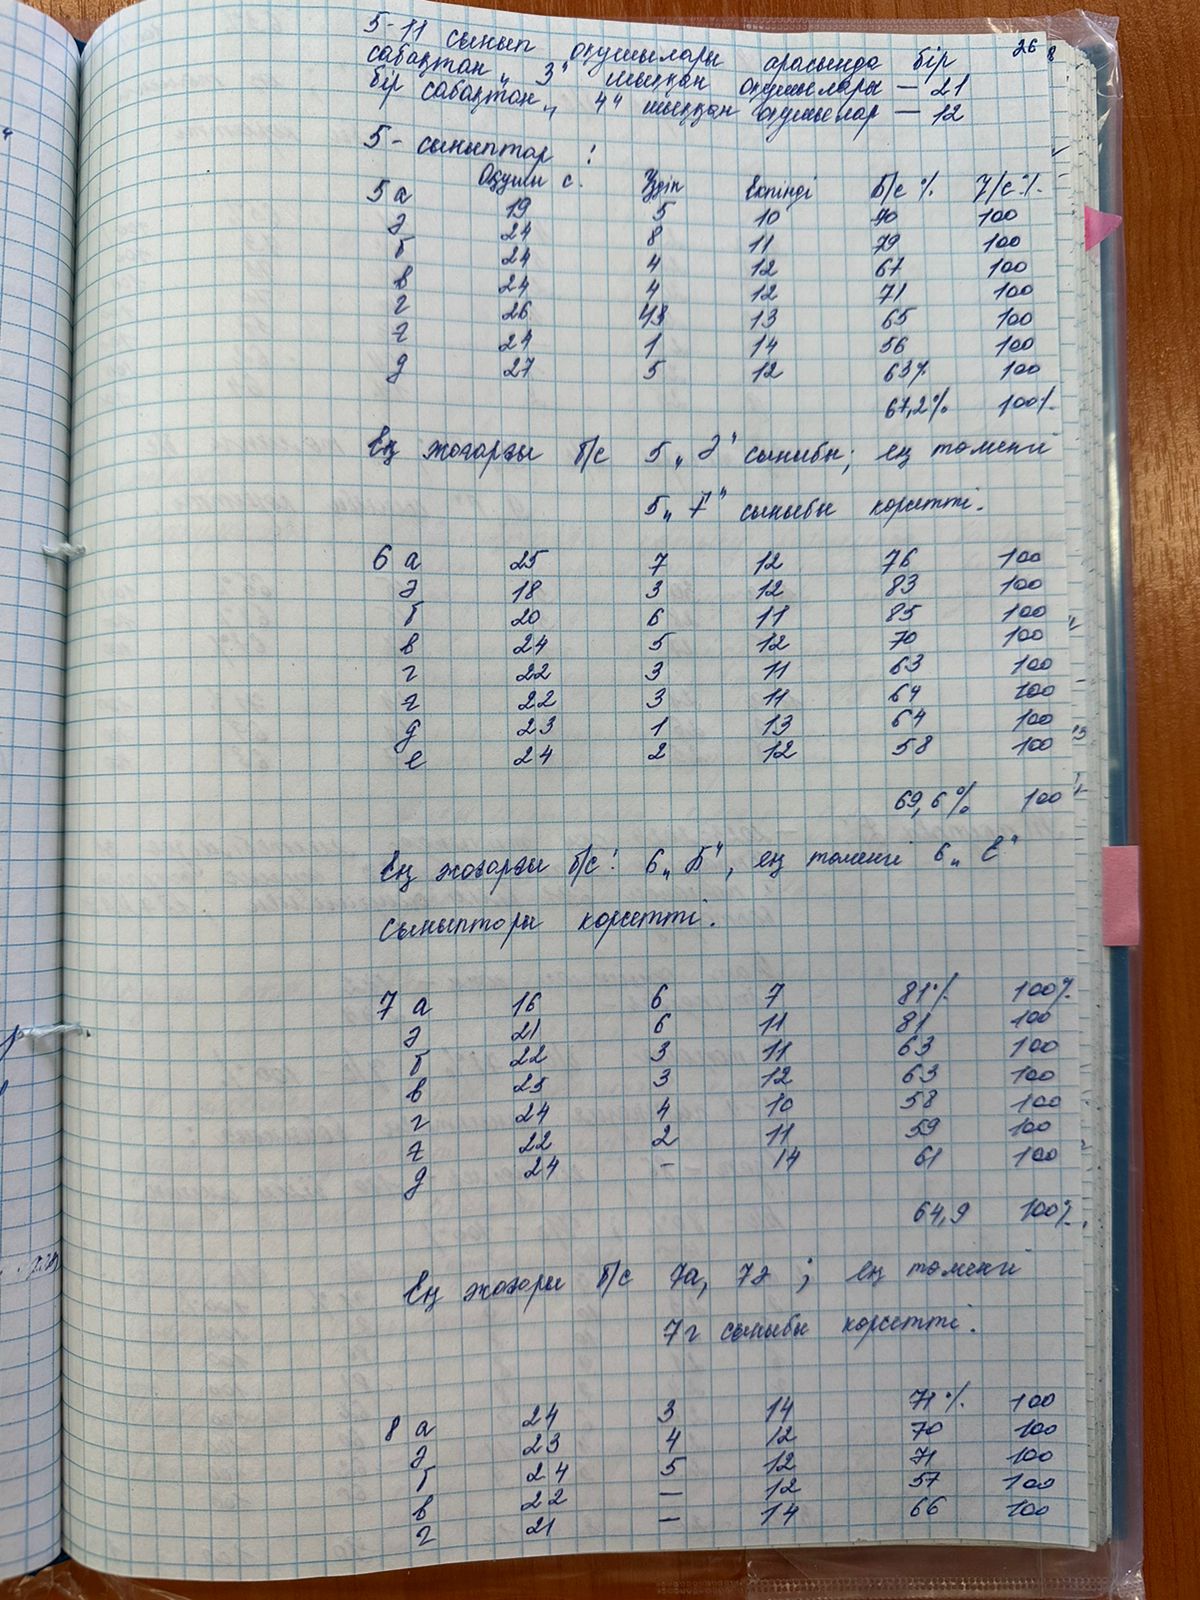 26
5-11 сынып оқушылары арасында бір
сабақтан „3" шыққан оқушылары — 21
бір сабақтан „4" шыққан оқушылар — 12
5- сыныптар :
Оқушы с. Үздік Екпінді Б/с % Ү/с %
5 а 19 5 10 70 100
ә 24 8 11 79 100
б 24 4 12 67 100
в 24 4 12 71 100
г 26 13 65 100
ғ 24 1 14 56 100
д 27 5 12 63% 100
67,2% 100%
Ең жоғарғы б/с 5 „Ә" сыныбы; ең төменгі
5„Ғ" сыныбы көрсетті.
6 а 25 7 12 76 100
ә 18 3 12 83 100
б 20 6 11 85 100
в 24 5 12 70 100
г 22 3 11 63 100
ғ 22 3 11 64 100
д 23 1 13 64 100
е 24 2 12 58 100
69,6% 100
Ең жоғарғы б/с: 6„Б", ең төменгі 6„Е"
сыныптары көрсетті.
7 а 16 6 7 81% 100%
ә 21 6 11 81 100
б 22 3 11 63 100
в 25 3 12 63 100
г 24 4 10 58 100
ғ 22 2 11 59 100
д 24 - 14 61 100
64,9 100%
Ең жоғары б/с 7а, 7ә ; ең төменгі
7г сыныбы көрсетті.
8 а 24 3 14 71% 100
ә 23 4 12 70 100
б 24 5 12 71 100
в 22 — 12 57 100
г 21 — 14 66 100